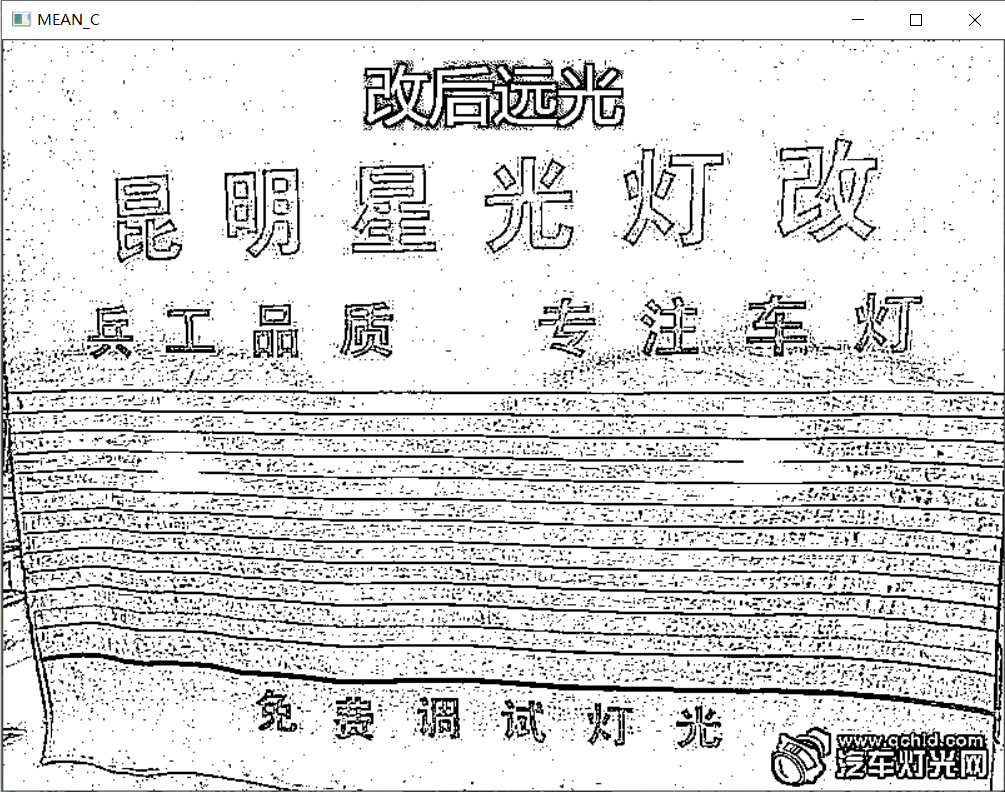 MEAN_C
改后远光
昆明星光灯改
兵工品质 专注车灯
免费调试灯光
www.qchid.com
汽车灯光网